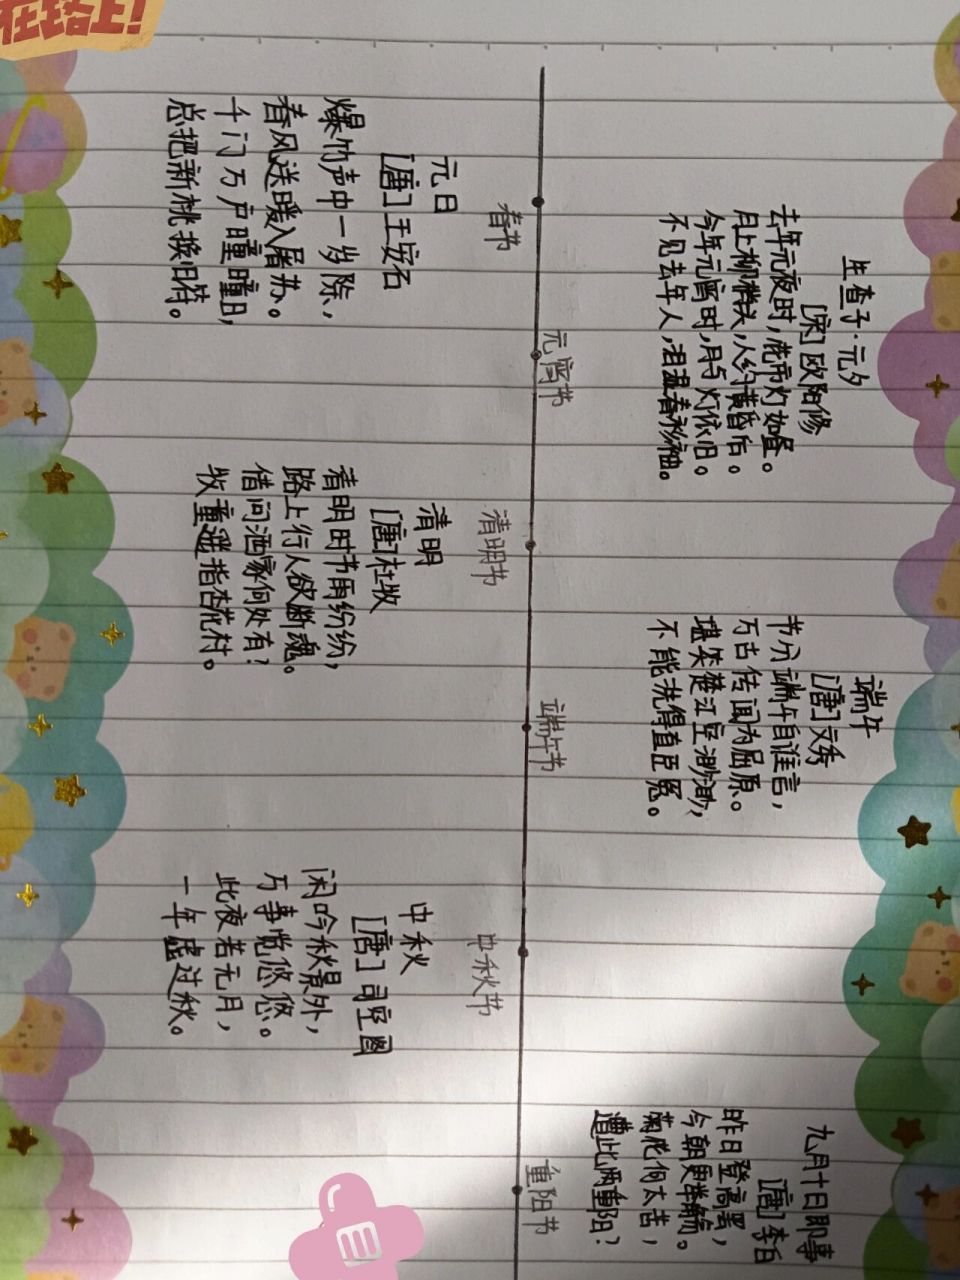 在路上!
春节
元日
[唐]王安石
爆竹声中一岁除，
春风送暖入屠苏。
千门万户曈曈日，
总把新桃换旧符。
元宵节
生查子·元夕
[宋]欧阳修
去年元夜时，花市灯如昼。
月上柳梢头，人约黄昏后。
今年元宵时，月与灯依旧。
不见去年人，泪湿春衫袖。
清明节
清明
[唐]杜牧
清明时节雨纷纷，
路上行人欲断魂。
借问酒家何处有？
牧童遥指杏花村。
端午节
端午
[唐]文秀
节分端午自谁言，
万古传闻为屈原。
堪笑楚江空渺渺，
不能洗得直臣冤。
中秋节
中秋
[唐]司空图
闲吟秋景外，
万事觉悠悠。
此夜若无月，
一年虚过秋。
重阳节
九月十日即事
[唐]李白
昨日登高罢，
今朝更举觞。
菊花何太苦，
遭此两重阳？